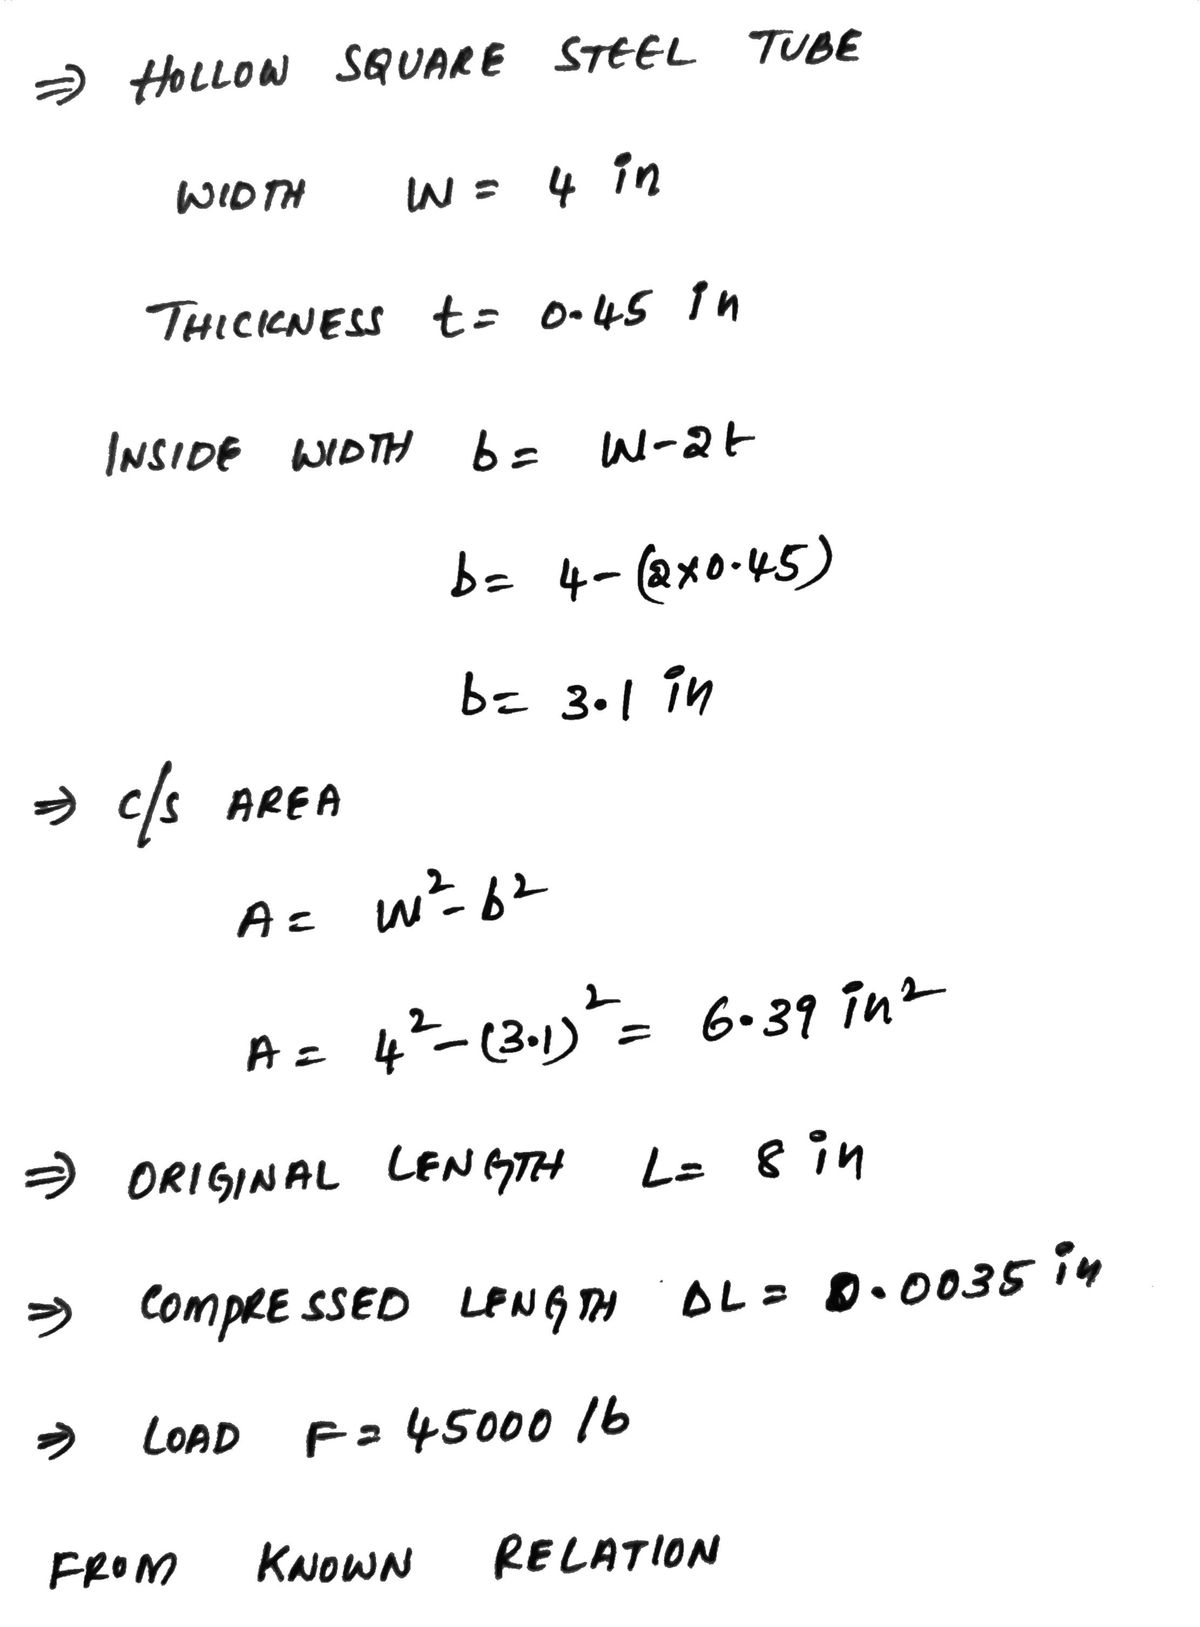 ⇒ HOLLOW SQUARE STEEL TUBE
WIDTH W = 4 in
THICKNESS t = 0.45 in
INSIDE WIDTH b = W-2t
b = 4-(2×0.45)
b = 3.1 in
⇒ C/S AREA
A = W²-b²
A = 4²-(3.1)² = 6.39 in²
⇒ ORIGINAL LENGTH L = 8 in
⇒ COMPRESSED LENGTH ΔL = 0.0035 in
⇒ LOAD F = 45000 lb
FROM KNOWN RELATION